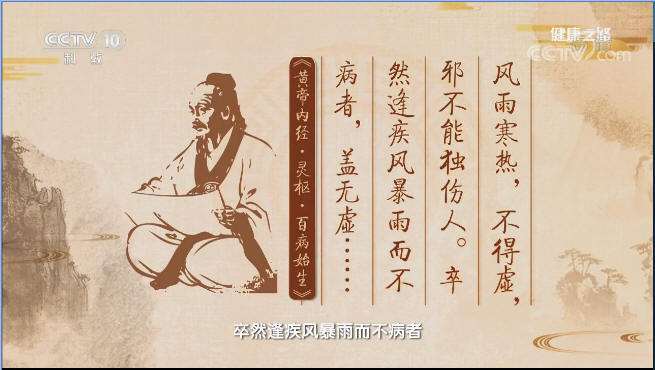 CCTV 10
科教
健康之路
CCTV.com
风雨寒热，不得虚，
邪不能独伤人。卒
然逢疾风暴雨而不
病者，盖无虚……
《黄帝内经·灵枢·百病始生》
卒然逢疾风暴雨而不病者